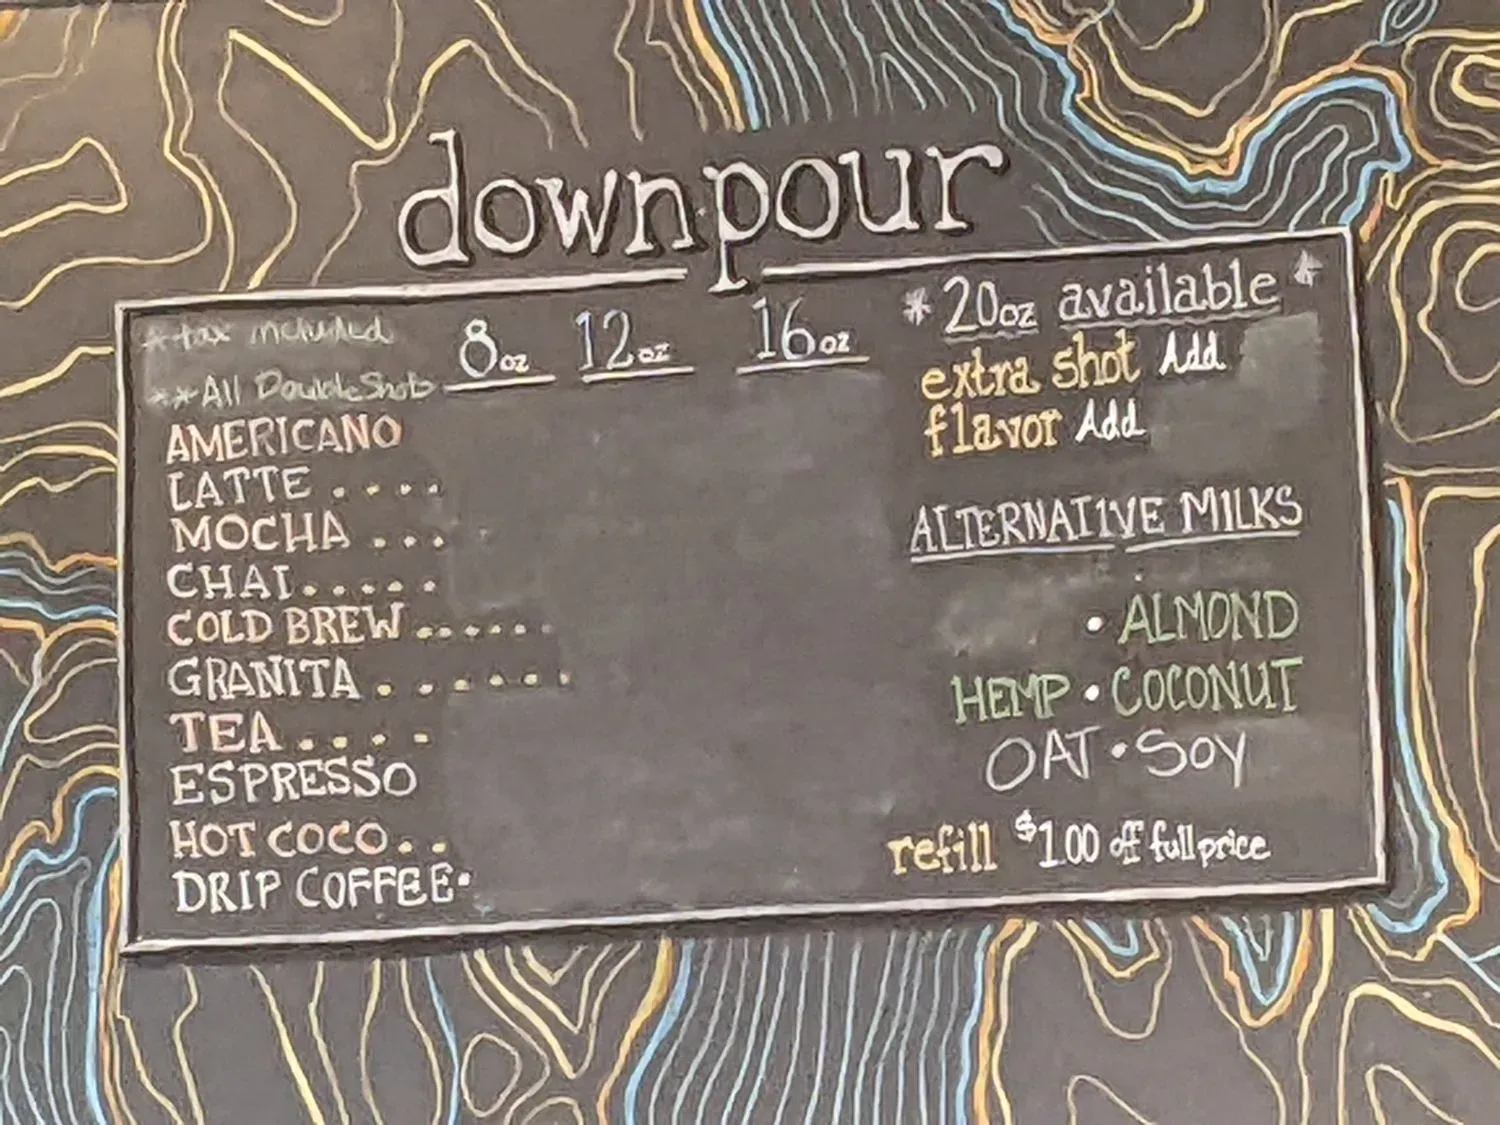 downpour
*tax included 8oz 12oz 16oz
**All Double Shots
AMERICANO
LATTE ....
MOCHA ...
CHAI.....
COLD BREW ......
GRANITA ......
TEA ....
ESPRESSO
HOT COCO..
DRIP COFFEE.
*20oz available*
extra shot Add
flavor Add
ALTERNATIVE MILKS
• ALMOND
HEMP • COCONUT
OAT • SOY
refill $1.00 off full price